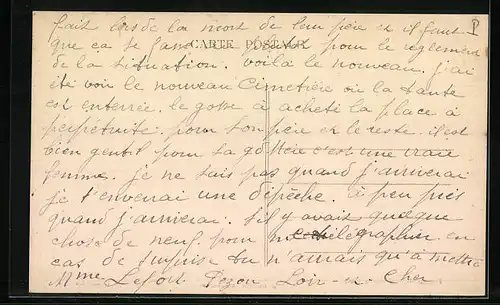 fait lors de la mort de leur père et il faut
que ça se fasse CARTE POSTALE pour le règlement
de la situation. voilà le nouveau. j'ai
été voir le nouveau Cimetière ou la tante
est enterrée. le gosse a acheté la place à
perpétuité. pour son père et le reste. il est
bien gentil pour sa c'est une vraie
femme. je ne sais pas quand j'arriverai
je t'enverrai une dépêche. à peu près
quand j'arriverai. s'il y avait quelque
chose de neuf. pour télégraphier en
cas de surprise tu n'aurais qu'à mettre
Mme Lefort Pezou Loir-et-Cher